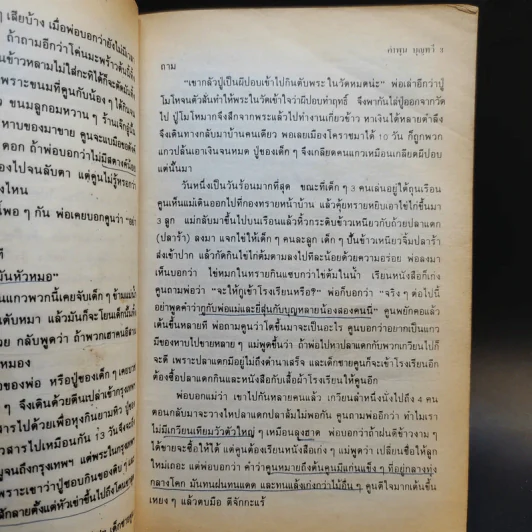 ๆ เสียบ้าง เมื่อพ่อบอกว่ายังไม่มีเวลา
ถ้าถามอีกว่าโค่นมะพร้าวต้นนี้
นข้าวหลามไม่ใส่กะทิได้ก็จะตัด
เพราะขนมที่คูนกับน้อง ๆ ได้กิน
ขนมลูกอมหวาน ๆ ร้านเจ๊กผู้
หาบของมาขาย คูนจะแบมือขอ
ดอก ถ้าพ่อบอกว่าไม่มีสตางค์
ไปจนลับตา แต่คูนไม่รู้หรอกว่า
ไหน
โพอ ๆ กัน พ่อเคยบอกคูนว่า "อย่า
ที
มันหัวหมอ"
นแกวพวกนี้เคยจับเด็ก ๆ ข้ามแม่น้ำ
ดับหมา แล้วมันก็จะโยนเด็กนั้น
กลับพูดว่า ถ้าพวกเฮาคนอีสาน
หมอง
ของพ่อ หรือปู่ของเด็ก ๆ เคย
ๆ จึงเดินด้วยตีนเปล่าเข้ากรุงเทพ
สารไปด้วยเพื่อหุงกินยามหิว ปู่ของ
วสารไปเหมือนกัน 13 วันจึงจะ
จนถึงกรุงเทพฯ แต่พระในกรุงเทพ
เพราะเขาว่าปู่ชอบกินของดิบ ๆ
สักลายตั้งแต่หัวเข่าขึ้นไปถึงโคนขา
คำพูน บุญทวี 3
ถาม
"เขากลัวปู่เป็นผีปอบเข้าไปกินตับพระ ในวัดหมดน่ะ" พ่อเล่าอีกว่าปู่
โมโหจนตัวสั่นทำให้พระในวัดเข้าใจว่าผีปอบทำฤทธิ์ จึงพากันไล่ปู่ออกจากวัด
ไป ปู่โมโหมากจึงสึกจากพระแล้วไปทำงานเกี่ยวข้าว หาเงินได้หลายตำลึง
จึงเดินทางกลับมาบ้านคนเดียว พอเลยเมืองโคราชมาได้ 10 วัน ก็ถูกพวก
แกวปล้นเอาเงินจนหมด ปู่ของเด็ก ๆ จึงเกลียดคนแกวเหมือนเกลียดผีปอบ
แต่นั้นมา
วันหนึ่งเป็นวันร้อนมากที่สุด ขณะที่เด็ก ๆ 3 คนเล่นอยู่ใต้ถุนเรือน
คูนเห็นแม่เดินออกไปที่กองทรายหน้าบ้าน แล้วคุ้ยทรายหยิบเอาไข่ไก่ขึ้นมา
3 ลูก แม่กลับมาขึ้นไปบนเรือนแล้วหิ้วกระติบข้าวเหนียวกับถ้วยปลาแดก
(ปลาร้า) ลงมา แจกไข่ให้เด็ก ๆ คนละลูก เด็ก ๆ ปั้นข้าวเหนียวจิ้มปลาร้า
ส่งเข้าปาก แล้วกัดกินไข่ไก่ต้มตามลงไปทีละน้อยด้วยความอร่อย พ่อลงมา
เห็นบอกว่า ไข่หมกในทรายกินแซบกว่าไข่ต้มในน้ำ เรียนหนังสือก็เก่ง
คูนถามพ่อว่า "จะให้กูเข้าโรงเรียนหรือ?" พ่อก็บอกว่า "จริง ๆ ต่อไปนี้
อย่าพูดคำว่ากูกับพ่อแม่และยี่สุ่นกับบุญหลายน้องสองคนนี้" คูนพยักคอแล้ว
เต้นขึ้นหลายที พ่อถามคูนว่าโตขึ้นมาจะเป็นอะไร คูนบอกว่าอยากเป็นแกว
มีของหาบไปขายหลาย ๆ แม่พูดขึ้นว่า ถ้าพ่อไปหาปลาแดกกับพวกเกวียนไปก็
จะดี เพราะปลาแดกมีอยู่ไม่ถึงดำนาเสร็จ และเด็กชายคูนก็จะเข้าโรงเรียนอีก
ต้องซื้อปลาแดกกินและหนังสือกับเสื้อผ้าโรงเรียนให้คูนอีก
พ่อบอกแม่ว่า เขาไปกันหลายคนแล้ว เกวียนลำหนึ่งนั่งไปถึง 4 คน
ตอนกลับมาจะวางไหปลาแดกปลาส้มไม่พอกัน คูนถามพ่ออีกว่า ทำไมเรา
ไม่มีเกวียนเทียมวัวตัวใหญ่ ๆ เหมือนลุงฮาด พ่อบอกว่าถ้าฝนดีข้าวงาม ๆ
ได้ขายจะซื้อให้ได้ แต่คูนต้องเรียนหนังสือเก่ง ๆ แม่พูดว่า เปลี่ยนชื่อให้ลูก
ใหม่เถอะ แต่พ่อบอกว่า คำว่าคูนหมายถึงต้นคูนมีแก่นแข็ง ๆ ที่อยู่กลางทุ่ง
กลางโคก มันทนฝนทนแดด และทนแล้งเก่งกว่าไม้อื่น ๆ คูนดีใจมากเต้นขึ้น
เหยง ๆ แล้วตบมือ ดีจักกะแร้